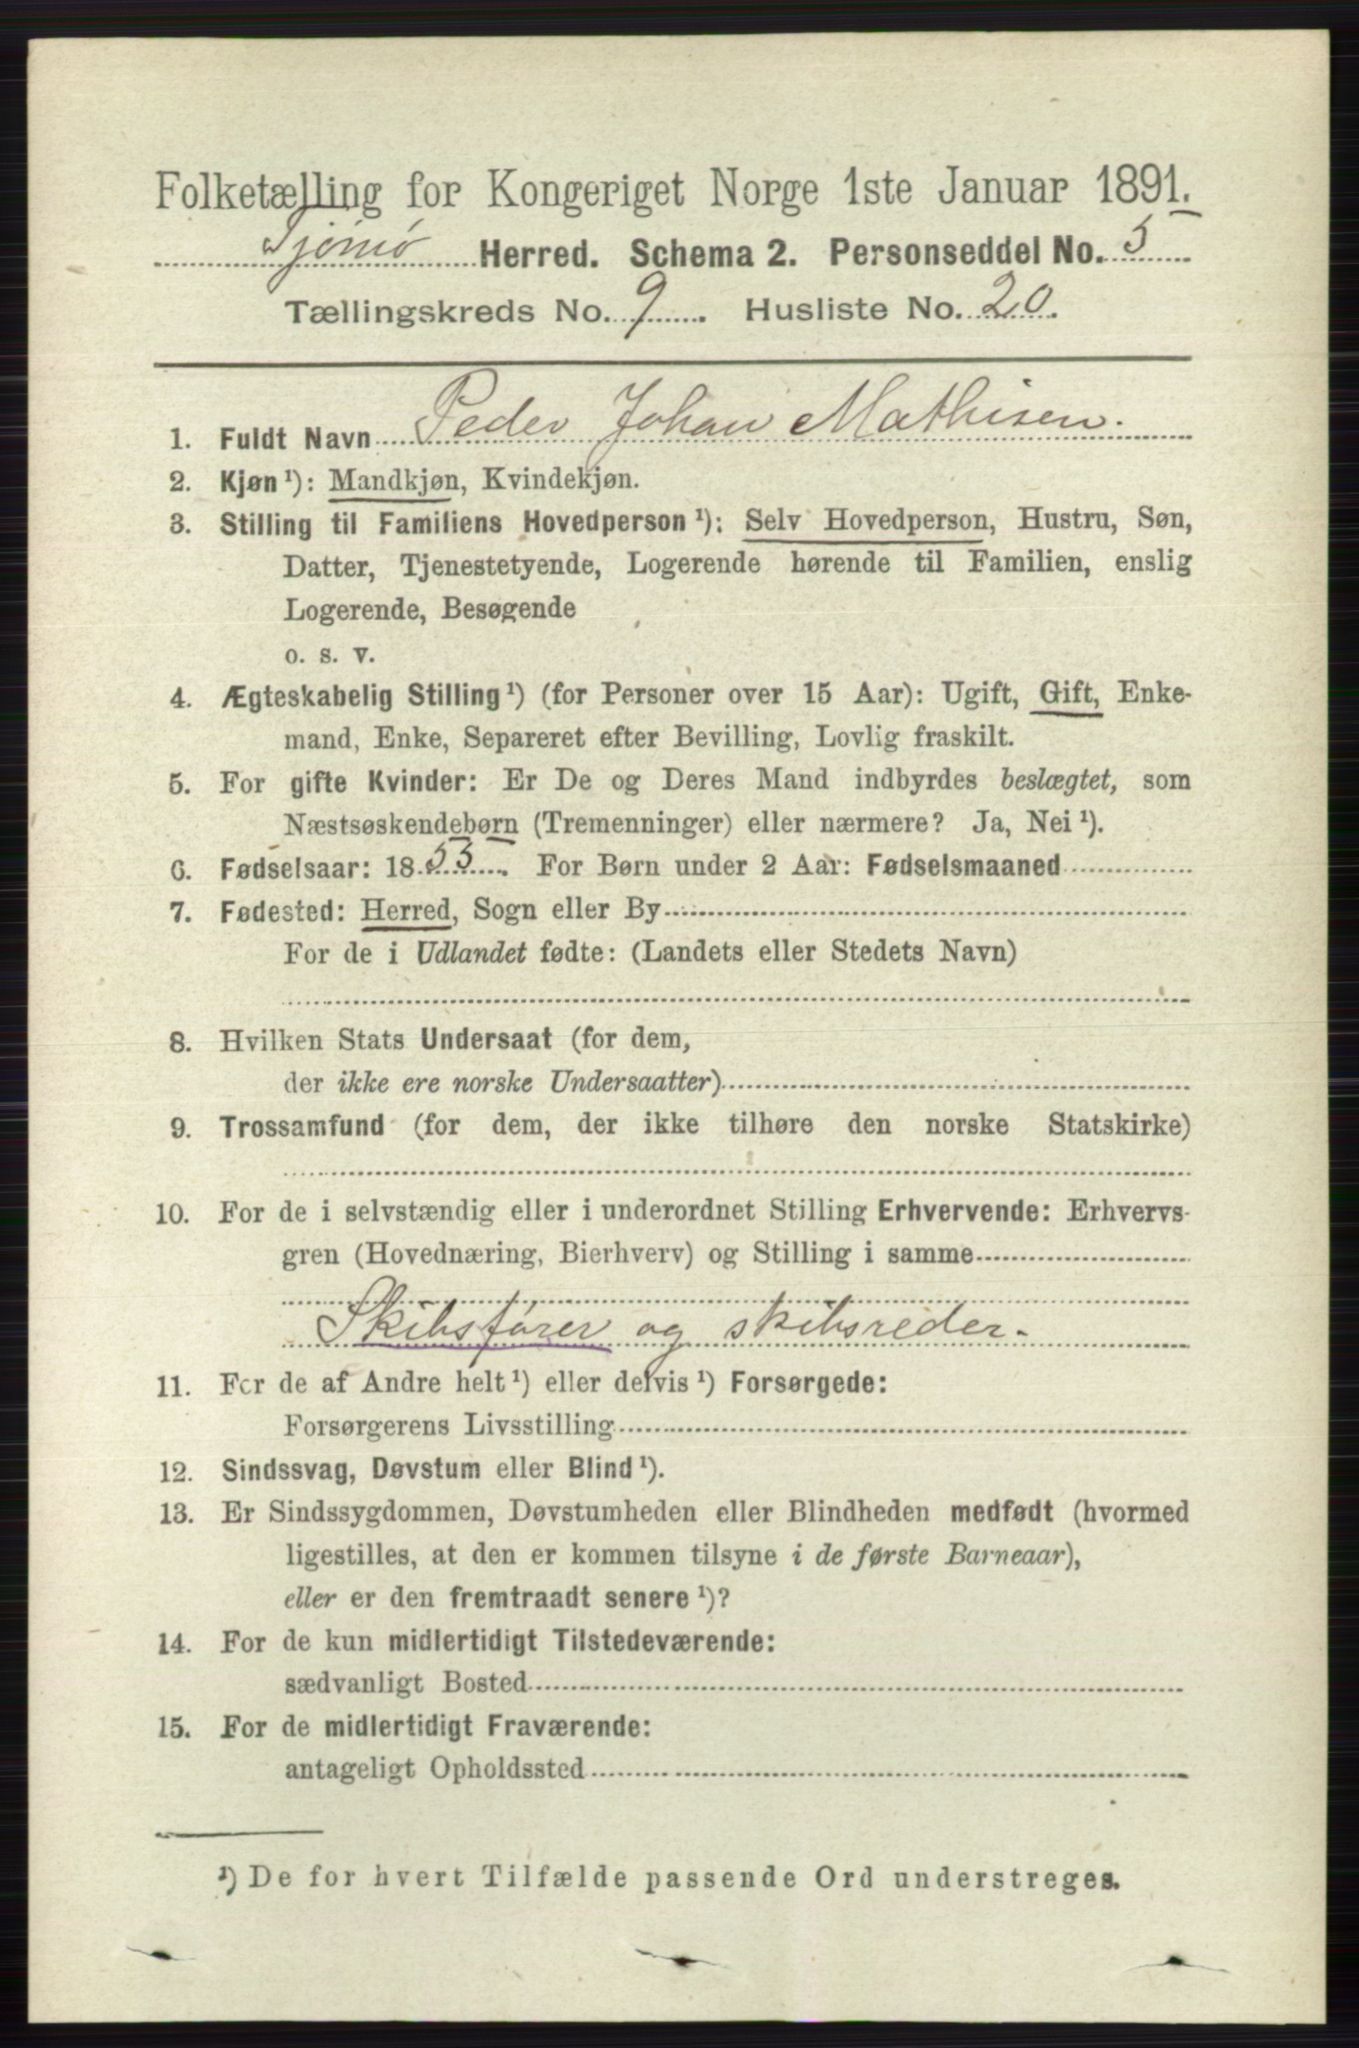 Folketælling for Kongeriget Norge 1ste Januar 1891.
Tjømø Herred. Schema 2. Personseddel No. 5
Tællingskreds No. 9. Husliste No. 20.
1. Fuldt Navn Peder Johan Mathisen.
2. Kjøn¹): Mandkjøn, Kvindekjøn.
3. Stilling til Familiens Hovedperson¹): Selv Hovedperson, Hustru, Søn,
Datter, Tjenestetyende, Logerende hørende til Familien, enslig
Logerende, Besøgende
o. s. v.
4. Ægteskabelig Stilling¹) (for Personer over 15 Aar): Ugift, Gift, Enke-
mand, Enke, Separeret efter Bevilling, Lovlig fraskilt.
5. For gifte Kvinder: Er De og Deres Mand indbyrdes beslægtet, som
Næstsøskendebørn (Tremenninger) eller nærmere? Ja, Nei¹).
6. Fødselsaar: 1855. For Børn under 2 Aar: Fødselsmaaned
7. Fødested: Herred, Sogn eller By
For de i Udlandet fødte: (Landets eller Stedets Navn)
8. Hvilken Stats Undersaat (for dem,
der ikke ere norske Undersaatter)
9. Trossamfund (for dem, der ikke tilhøre den norske Statskirke)
10. For de i selvstændig eller i underordnet Stilling Erhvervende: Erhvervs-
gren (Hovednæring, Bierhverv) og Stilling i samme
Skibsfører og skibsreder.
11. For de af Andre helt¹) eller delvis¹) Forsørgede:
Forsørgerens Livsstilling
12. Sindssvag, Døvstum eller Blind¹).
13. Er Sindssygdommen, Døvstumheden eller Blindheden medfødt (hvormed
ligestilles, at den er kommen tilsyne i de første Barneaar),
eller er den fremtraadt senere¹)?
14. For de kun midlertidigt Tilstedeværende:
sædvanligt Bosted
15. For de midlertidigt Fraværende:
antageligt Opholdssted
¹) De for hvert Tilfælde passende Ord understreges.